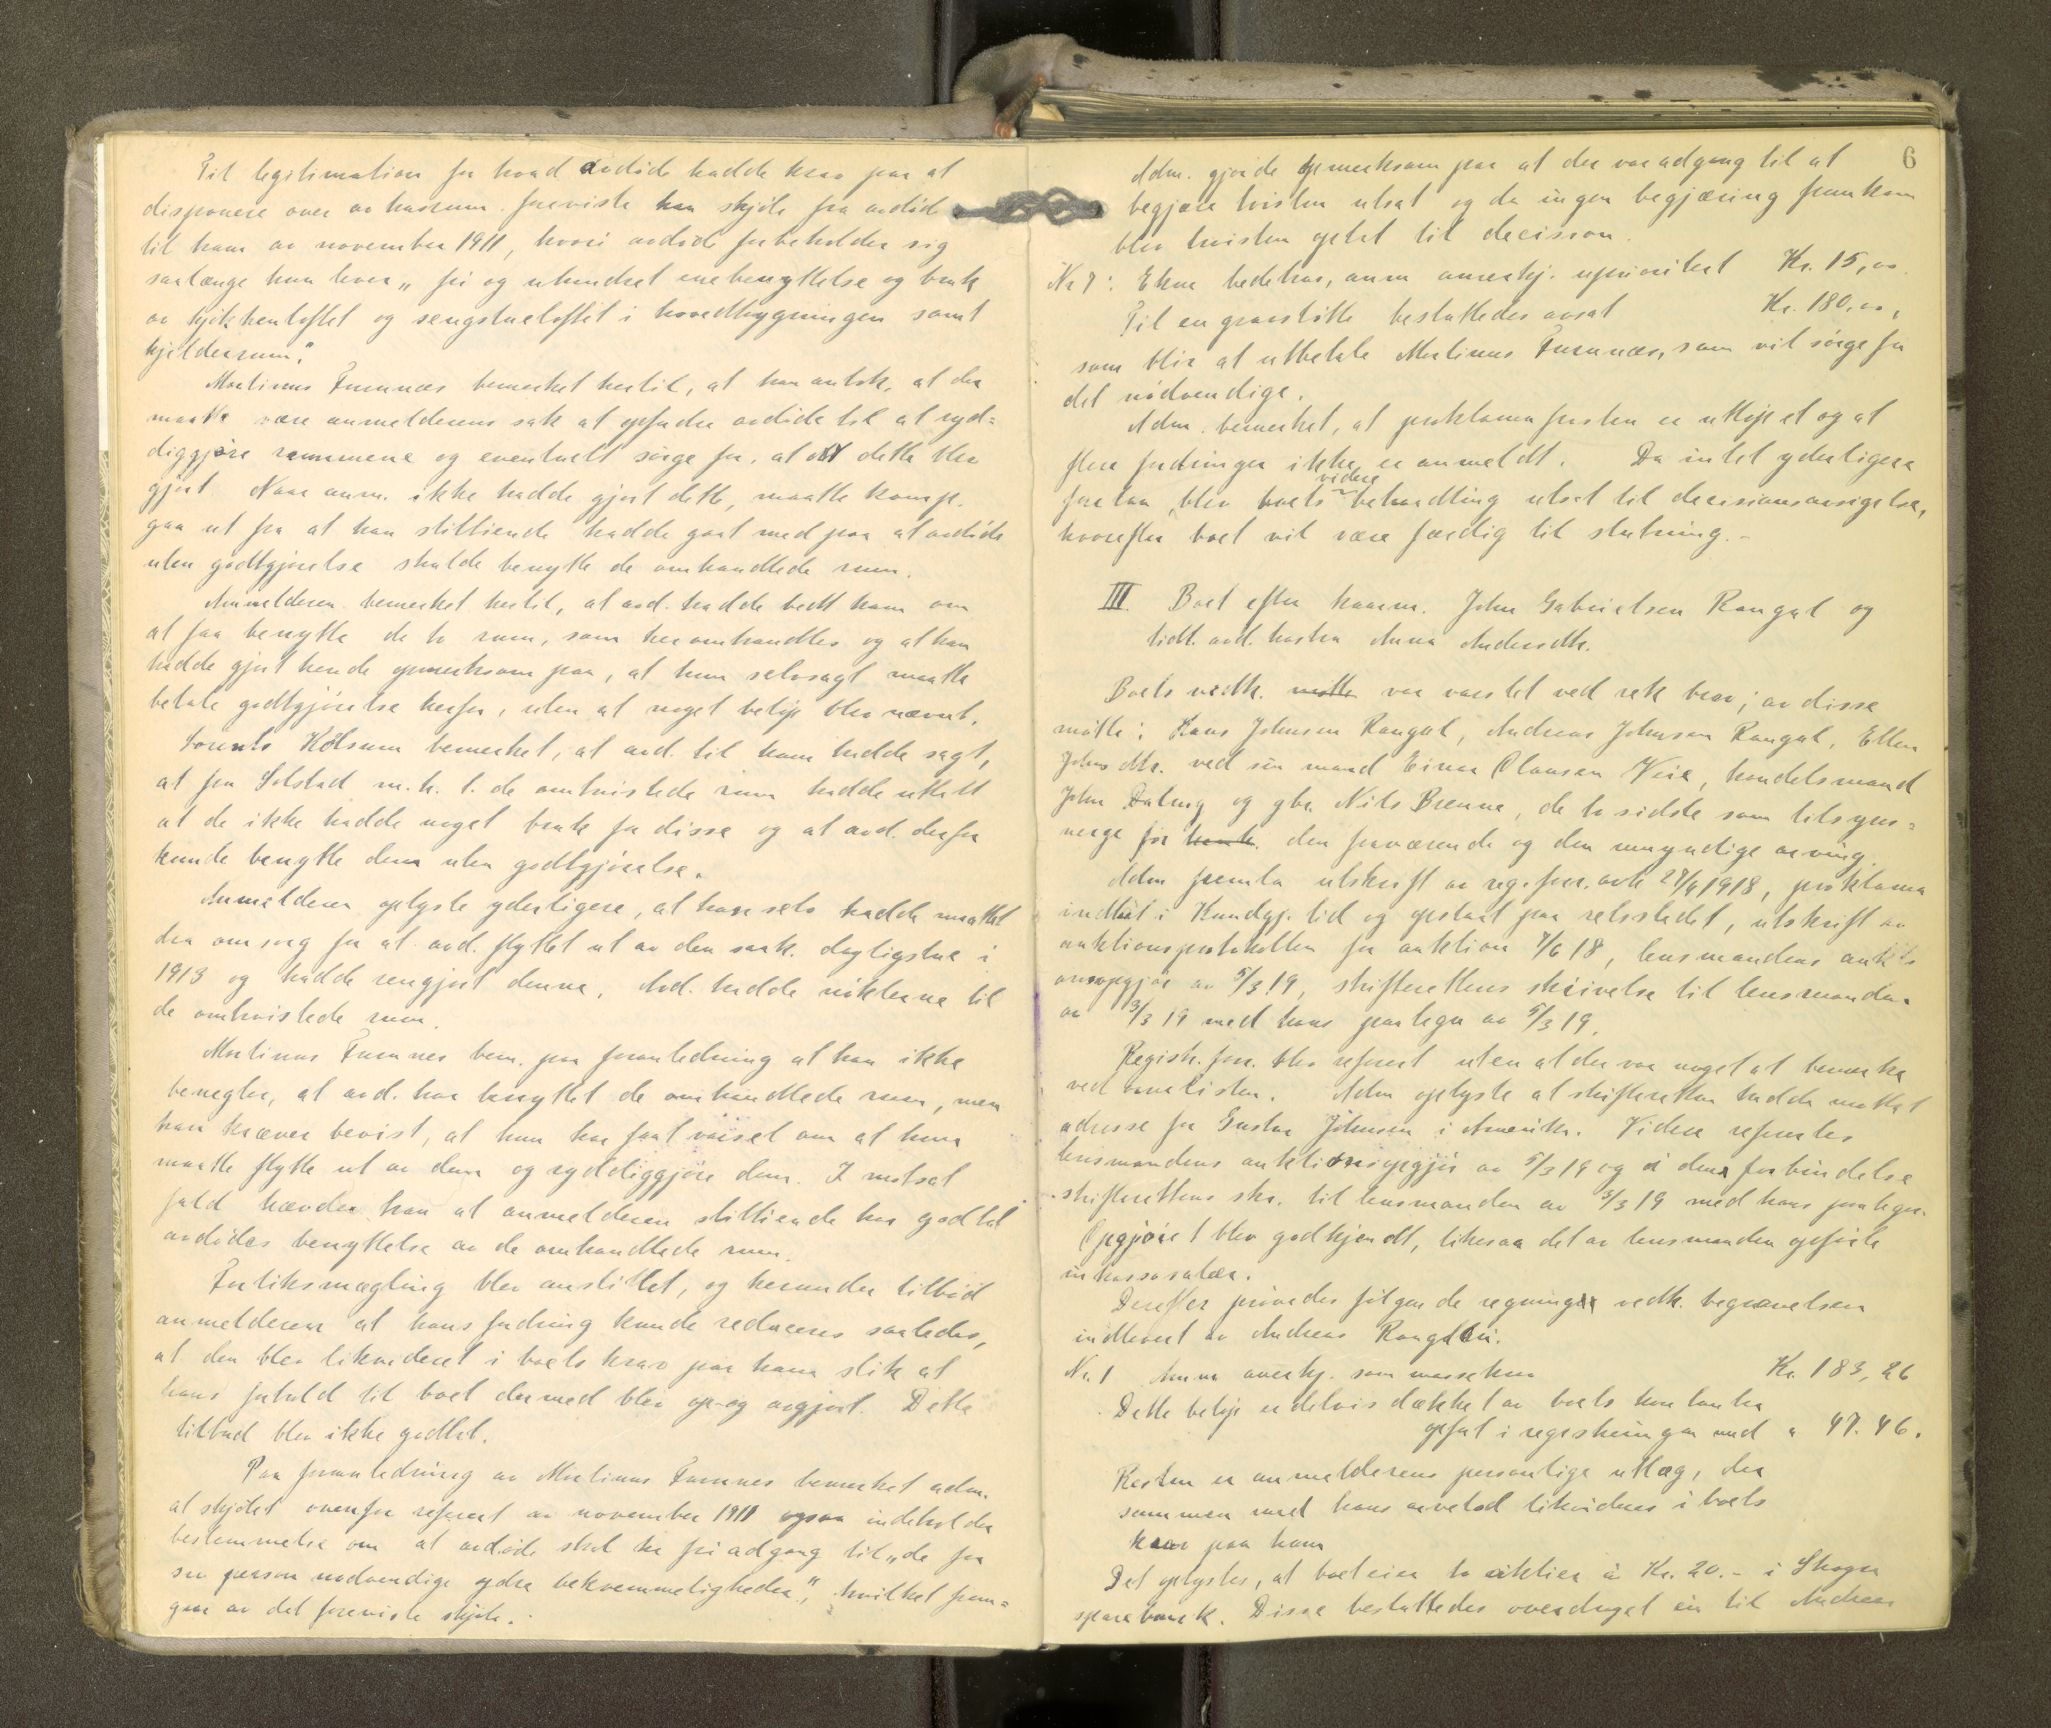 Til legitimation for hvad avdöde hadde krav paa at
disponere over av husrum foreviste han skjöte fra avdöde
til ham av november 1911, hvori avdöde forbeholder sig
saalænge hun lever „fri og uhindret enebenyttelse og bruk
av kjökkenloftet og sengstueloftet i hovedbygningen samt
kjelderrum."
Martinus Furunæs bemerket hertil, at han antok, at det
maatte være anmelderens sak at opfordre avdöde til at ryd-
diggjöre rummene og eventuelt sörge for, at dette blev
gjort. Naar anm. ikke hadde gjort dette, maatte komp.
gaa ut fra at han stiltiende hadde gaat med paa at avdöde
uten godtgjörelse skulde benytte de omhandlede rum.
Anmelderen bemerket hertil, at avd. hadde bedt ham om
at faa benytte de to rum, som her omhandles og at han
hadde gjort hende opmerksom paa, at hun selvsagt maatte
betale godtgjörelse herfor, uten at noget belöp blev nævnt.
Lorents Kolsum bemerket, at avd. til ham hadde sagt,
at fru Solstad m. h. t. de omtvistede rum hadde uttalt
at de ikke hadde noget bruk for disse og at avd. derfor
kunde benytte dem uten godtgjörelse.
Anmelderen oplyste yderligere, at han selv hadde maattet
dra omsorg for at avd. flyttet ut av den saak. dagligstue i
1913 og hadde rengjort denne. Avd. hadde nöklerne til
de omtvistede rum.
Martinus Furunes bem. paa foranledning at han ikke
benegter, at avd. har benyttet de omhandlede rum, men
han kræver bevist, at hun har faat varsel om at hun
maatte flytte ut av dem og ryddiggjöre dem. I motsat
fald hævder han at anmelderen stiltiende har godtat
avdödes benyttelse av de omhandlede rum.
Forliksmægling blev anstillet, og herunder tilböd
anmelderen at hans fordring kunde reduceres saaledes,
at den blev likvideret i boets krav paa ham slik at
hans forhold til boet dermed blev op- og avgjort. Dette
tilbud blev ikke godtat.
Paa foranledning av Martinus Furunes bemerket adm.
at skjötet ovenfor referert av november 1911 ogsaa indeholder
bestemmelse om at avdöde skal ha fri adgang til „de for
sin person nödvendige ydre bekvemmeligheder," hvilket frem-
gaar av det foreviste skjöte.
6
Adm. gjorde opmerksom paa at der var adgang til at
begjære tvisten utsat og da ingen begjæring fremkom
blev tvisten optat til decision.
Nr 7: Ekne bedehus, anm anerkj. uprioritert Kr. 15,oo.
Til en gravstötte besluttedes avsat Kr. 180.oo,
som blir at utbetale Martinus Furunæs, som vil sörge for
det nödvendige.
Adm. bemerket, at proklamafristen er utlöpet og at
flere fordringer ikke er anmeldt. Da intet yderligere
forelaa, blev boets videre behandling utsat til decisionsavsigelse,
hvorefter boet vil være færdig til slutning.-
III. Boet efter kaarm. John Gabrielsen Rangul og
tidl. avd. hustru Anna Andersdtr.
Boets vedk. var varslet ved rek. brev; av disse
mötte: Hans Johnsen Rangul, Andreas Johnsen Rangul, Ellen
Johnsdtr. ved sin mand Einar Olausen Veie, handelsmand
John Dalung og gbr. Nils Brenne, de to sidste som tilsyns-
verge for den fraværende og den umyndige arving.
Adm fremla utskrift av reg. forr. avh. 27/4 1918, proklama
indtat i Kundgj. tid og opslaat paa retsstedet, utskrift av
auktionsprotokollen for auktion 7/6 18, lensmandens aukti-
onsopgjör av 5/3 19, skifterettens skrivelse til lensmanden
av 3/3 19 med hans paategn av 5/3 19.
Registr. forr. blev referert uten at der var noget at bemerke
ved arvelisten. Adm oplyste at skifteretten hadde mottat
adresse for Gustav Johnsen i Amerika. Videre refertes
lensmandens auktionsopgjör av 5/3 19 og i den forbindelse
skifterettens skr. til lensmanden av 3/3 19 med hans paategn.
Opgjöret blev godkjendt, likesaa det av lensmanden opförte
inkassosalær.
Derefter prövedes fölgende regninger vedk. begravelsen
indlevert av Andreas Rangul:
Nr. 1 Anm anerkj. som massekrav Kr. 183,26
Dette belöp er delvis dækket av boets kontanter
opfört i registreringen med " 47.46.
Resten er anmelderens personlige utlæg, der
sammen med hans arvelod likvideres i boets
krav paa ham
Det oplystes, at boet eier to aktier à Kr. 20.- i Skogn
sparebank. Disse besluttedes overdraget en til Andreas